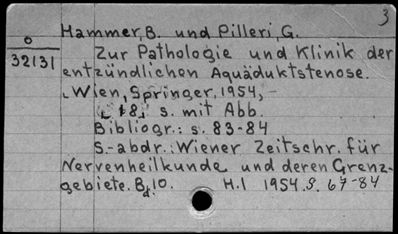 3
Hammer, B. und Pilleri, G.
0
32131
Zur Pathologie und Klinik der
entzündlichen Aquäduktstenose.
Wien, Springer, 1954,-
18, s. mit Abb.
Bibliogr.: s. 83-84
S.-abdr.: Wiener Zeitschr. für
Nervenheilkunde und deren Grenz-
gebiete. Bd. 10. H.1 1954. S. 67-84